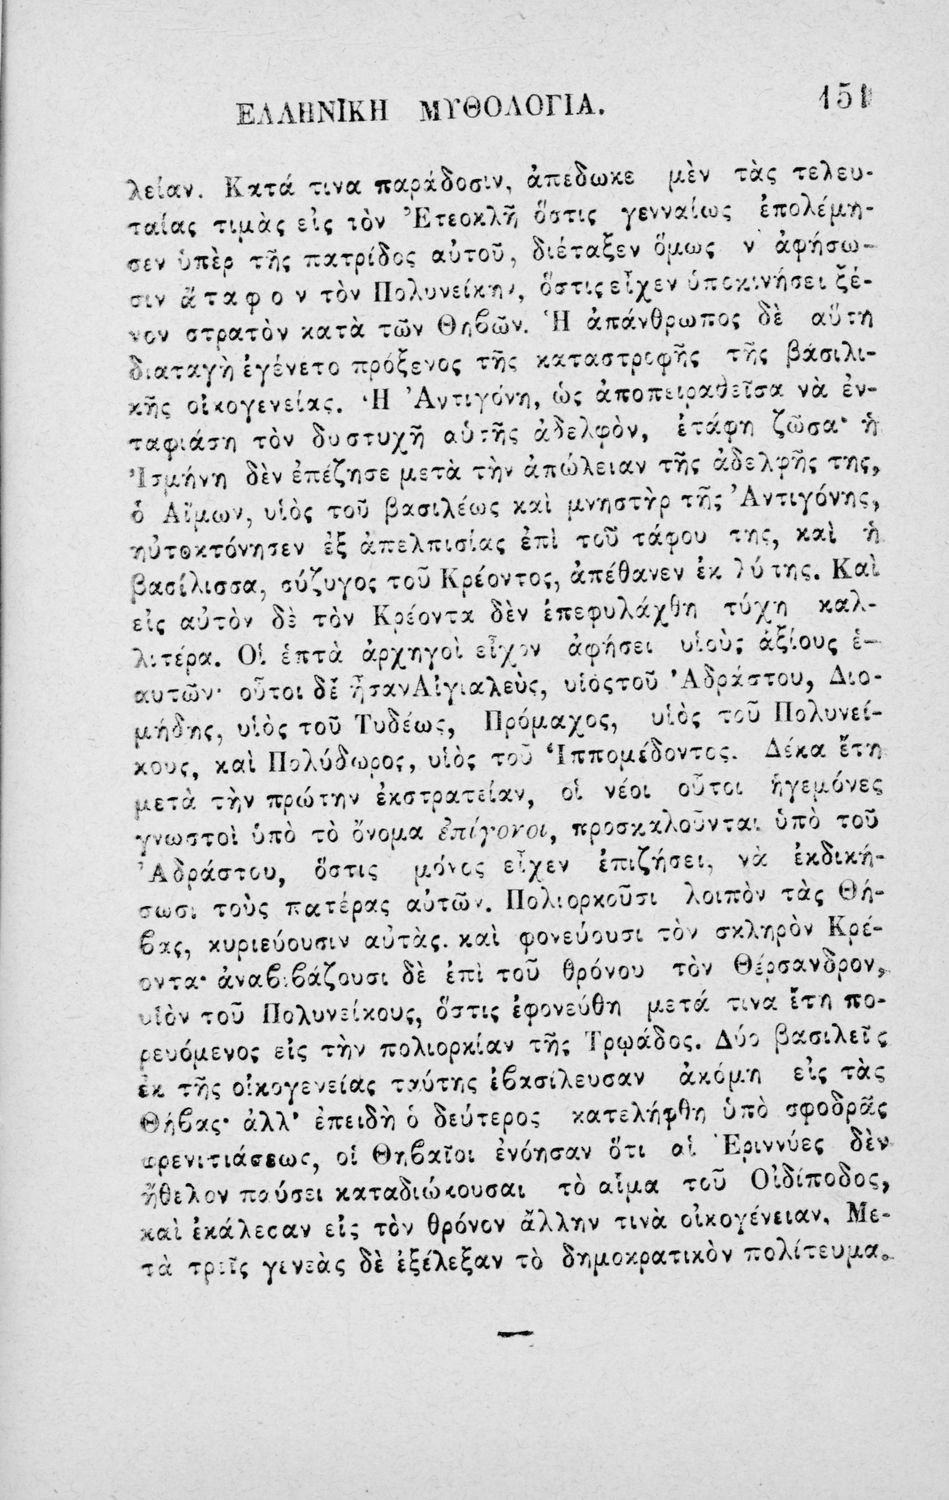 ΕΛΛΗΝΙΚΗ ΜΥΘΟΛΟΓΙΑ. 151
λείαν. Κατά τινα παράδοσιν, ἀπέδωκε μὲν τὰς τελευ-
ταίας τιμὰς εἰς τὸν Ἐτεοκλῆ ὅστις γενναίως ἐπολέμη-
σεν ὑπὲρ τῆς πατρίδος αὐτοῦ, διέταξεν ὅμως ν' ἀφήσω-
σιν ἄταφον τὸν Πολυνείκην, ὅστις εἶχεν ὑποκινήσει ξέ-
νον στρατὸν κατὰ τῶν Θηβῶν. Ἡ ἀπάνθρωπος δὲ αὕτη
διαταγὴ ἐγένετο πρόξενος τῆς καταστροφῆς τῆς βάσιλι-
κῆς οἰκογενείας. Ἡ Ἀντιγόνη, ὡς ἀποπειραθεῖσα νὰ ἐν-
ταφιάση τὸν δυστυχῆ αὑτῆς ἀδελφὸν, ἐτάφη ζῶσα· ἡ
Ἰσμήνη δὲν ἐπέζησε μετὰ τὴν ἀπώλειαν τῆς ἀδελφῆς της,
ὁ Αἵμων, υἱὸς τοῦ βασιλέως καὶ μνηστὴρ τῆς Ἀντιγόνης,
ηὐτοκτόνησεν ἐξ ἀπελπισίας ἐπὶ τοῦ τάφου της, καὶ ἡ
βασίλισσα, σύζυγος τοῦ Κρέοντος, ἀπέθανεν ἐκ λύπης. Καὶ
εἰς αὐτὸν δὲ τὸν Κρέοντα δὲν ἐπεφυλάχθη τύχη καλ-
λιτέρα. Οἱ ἑπτὰ ἀρχηγοὶ εἶχον ἀφήσει υἱοὺς ἀξίους ἑ-
αυτῶν· οὗτοι δὲ ἦσαν Αἰγιαλεὺς, υἱὸς τοῦ Ἀδράστου, Διο-
μήδης, υἱὸς τοῦ Τυδέως, Πρόμαχος, υἱὸς τοῦ Πολυνεί-
κους, καὶ Πολύδωρος, υἱὸς τοῦ Ἱππομέδοντος. Δέκα ἔτη
μετὰ τὴν πρώτην ἐκστρατείαν, οἱ νέοι οὗτοι ἡγεμόνες
γνωστοὶ ὑπὸ τὸ ὄνομα ἐπίγονοι, προσκαλοῦνται ὑπὸ τοῦ
Ἀδράστου, ὅστις μόνος εἶχεν ἐπιζήσει, νὰ ἐκδική-
σωσι τοὺς πατέρας αὐτῶν. Πολιορκοῦσι λοιπὸν τὰς Θή-
βας, κυριεύουσιν αὐτὰς. καὶ φονεύουσι τὸν σκληρὸν Κρέ-
οντα· ἀναβιβάζουσι δὲ ἐπὶ τοῦ θρόνου τὸν Θέρσανδρον,
υἱὸν τοῦ Πολυνείκους, ὅστις ἐφονεύθη μετά τινα ἔτη πο-
ρευόμενος εἰς τὴν πολιορκίαν τῆς Τρῳάδος. Δύο βασιλεῖς
ἐκ τῆς οἰκογενείας ταύτης ἐβασίλευσαν ἀκόμη εἰς τὰς
Θήβας· ἀλλ' ἐπειδὴ ὁ δεύτερος κατελήφθη ὑπὸ σφοδρᾶς
φρενιτιάσεως, οἱ Θηβαῖοι ἐνόησαν ὅτι αἱ Ἐριννύες δὲν
ἤθελον παύσει καταδιώκουσαι τὸ αἷμα τοῦ Οἰδίποδος,
καὶ ἐκάλεσαν εἰς τὸν θρόνον ἄλλην τινὰ οἰκογένειαν. Με-
τὰ τρεῖς γενεὰς δὲ ἐξέλεξαν τὸ δημοκρατικὸν πολίτευμα.